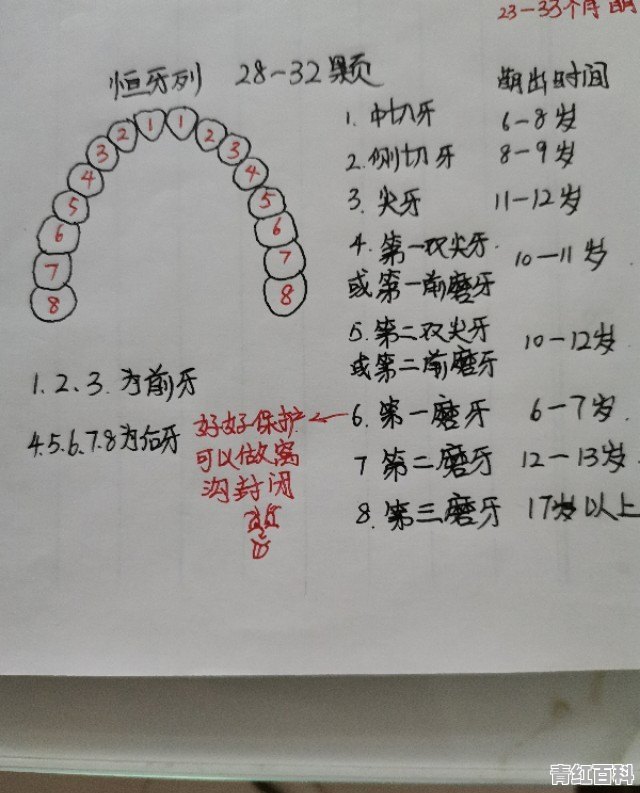 23-33个月萌
恒牙列 28-32颗
萌出时间
1. 中切牙 6-8岁
2. 侧切牙 8-9岁
3. 尖牙 11-12岁
4. 第一双尖牙 10-11岁
或第一前磨牙
5. 第二双尖牙 10-12岁
或第二前磨牙
6. 第一磨牙 6-7岁
7 第二磨牙 12-13岁
8. 第三磨牙 17岁以上
1 1
2 2
3 3
4 4
5 5
6 6
7 7
8 8
1.2.3.为前牙
4.5.6.7.8为后牙
好好保护
可以做窝
沟封闭
青红百科